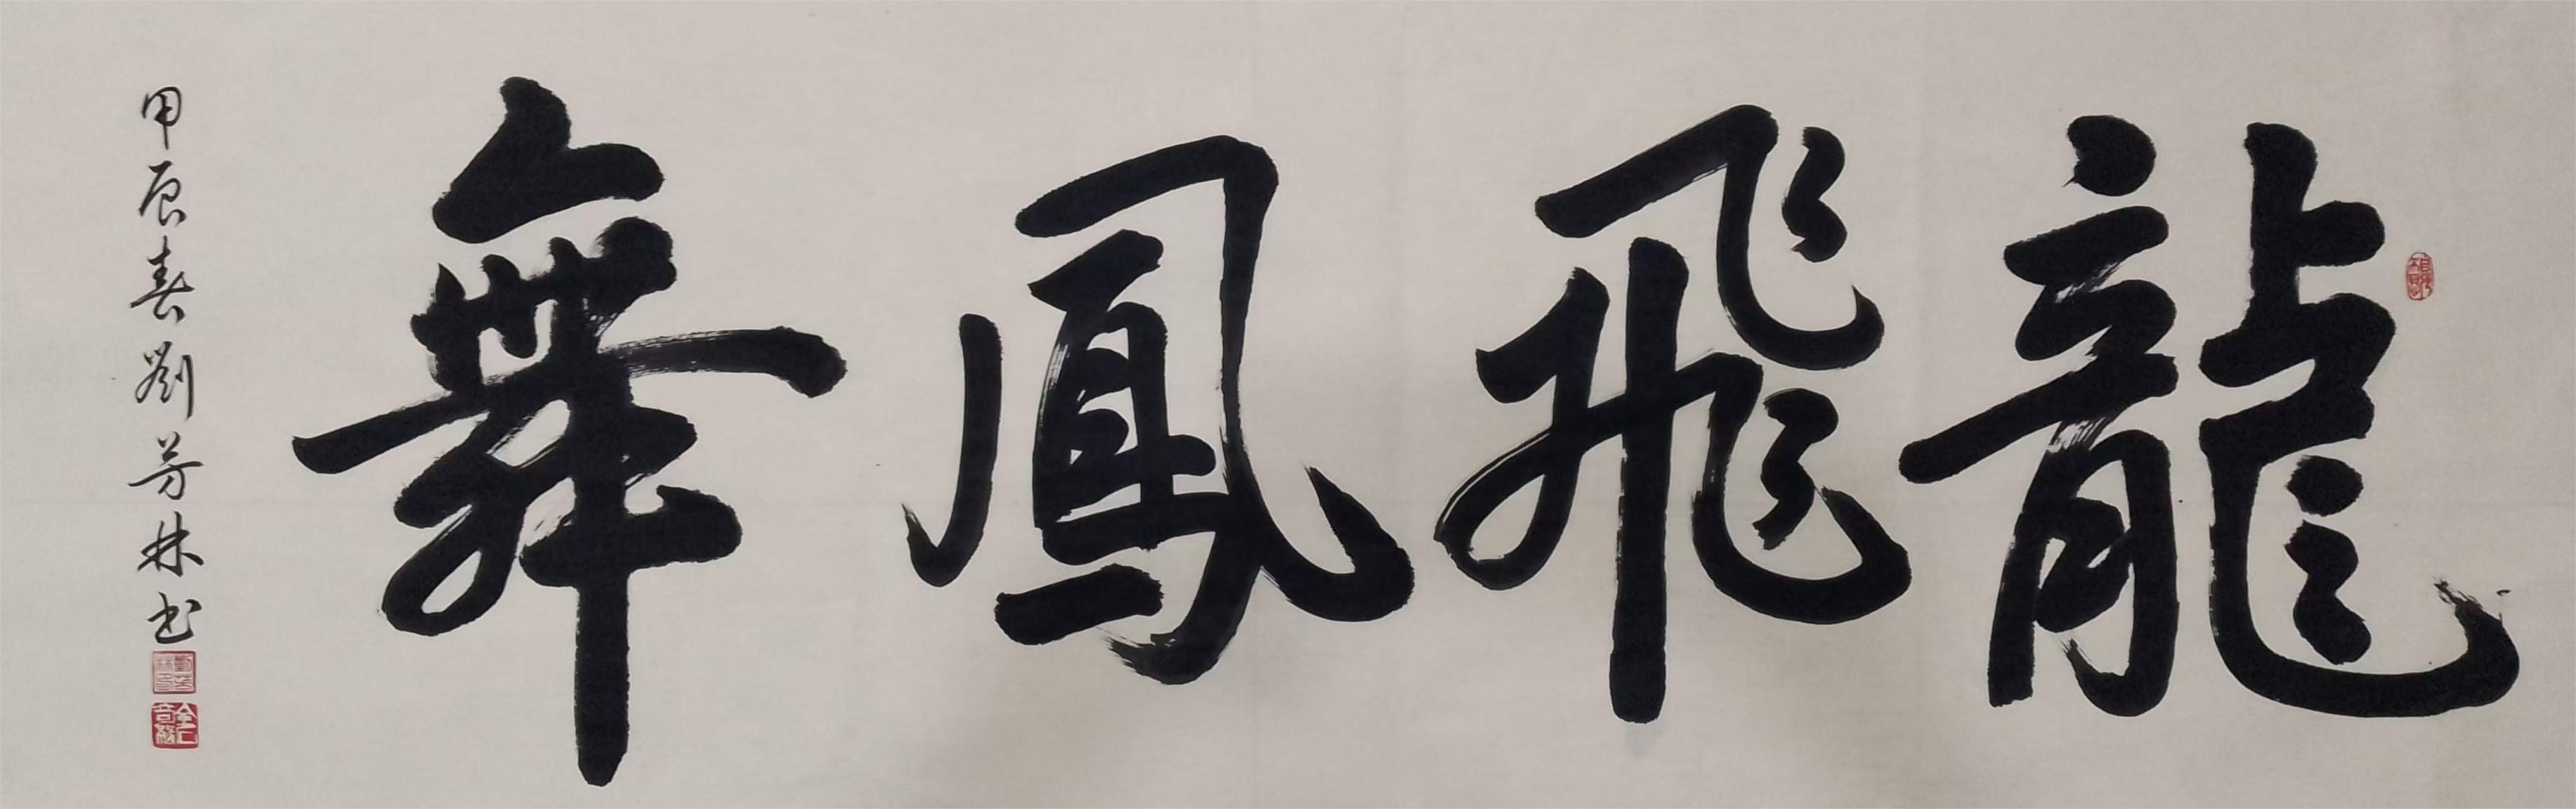 龍飛鳳舞
甲辰春劉芳林书